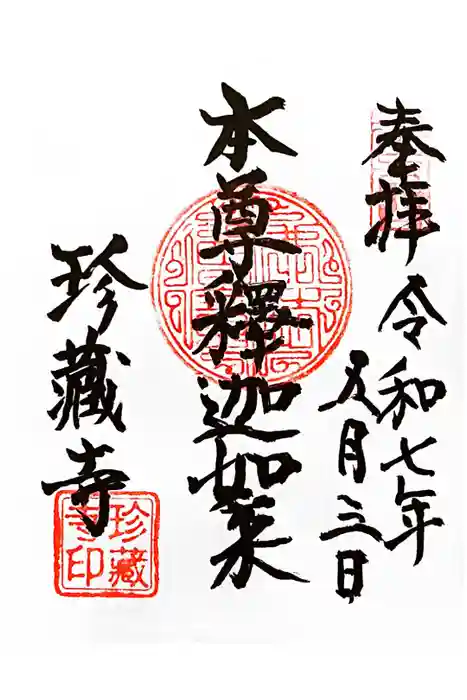 奉拝
令和七年
五月三日
本尊釋迦如来
珍藏寺
珍藏寺印